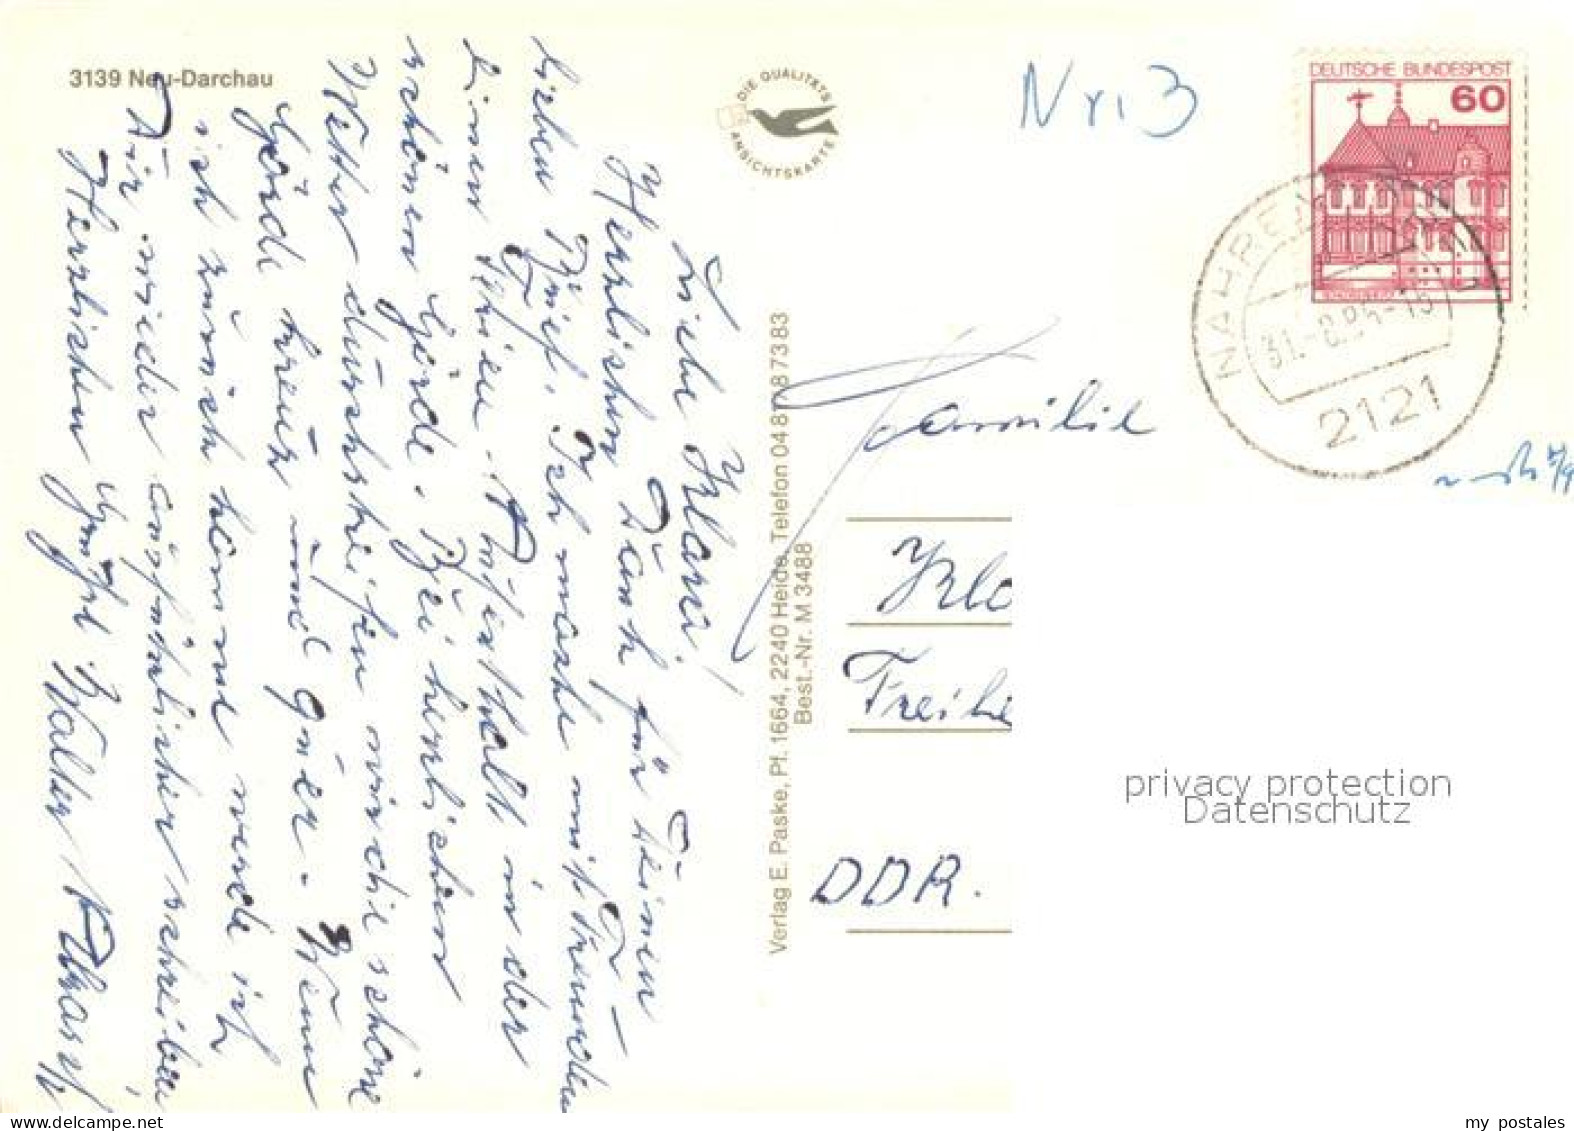 3139 Neu-Darchau
DIE QUALITÄTS
ANSICHTSKARTE
Nr. 3
DEUTSCHE BUNDESPOST
60
NAHRENDORF
31.-8.84-16
2121
Liebe Klara!
Herzlichen Dank für Deinen
lieben Brief. Ich mache mit Freunden
einen Aufenthalt in der
schönen Görde. Bei herrlichem
Wetter durchstreifen wir die schöne
Görde kreuz und quer. Wenn
ich zurück komme werde ich
Dir wieder ausführlicher schreiben
Herzlichen Gruß Walter
Verlag E. Paske, Pf. 1664, 2240 Heide, Telefon 04 81 / 8 73 83
Best.-Nr. M 3488
Familie
Kla
Freibe
DDR.
privacy protection
Datenschutz
my postales